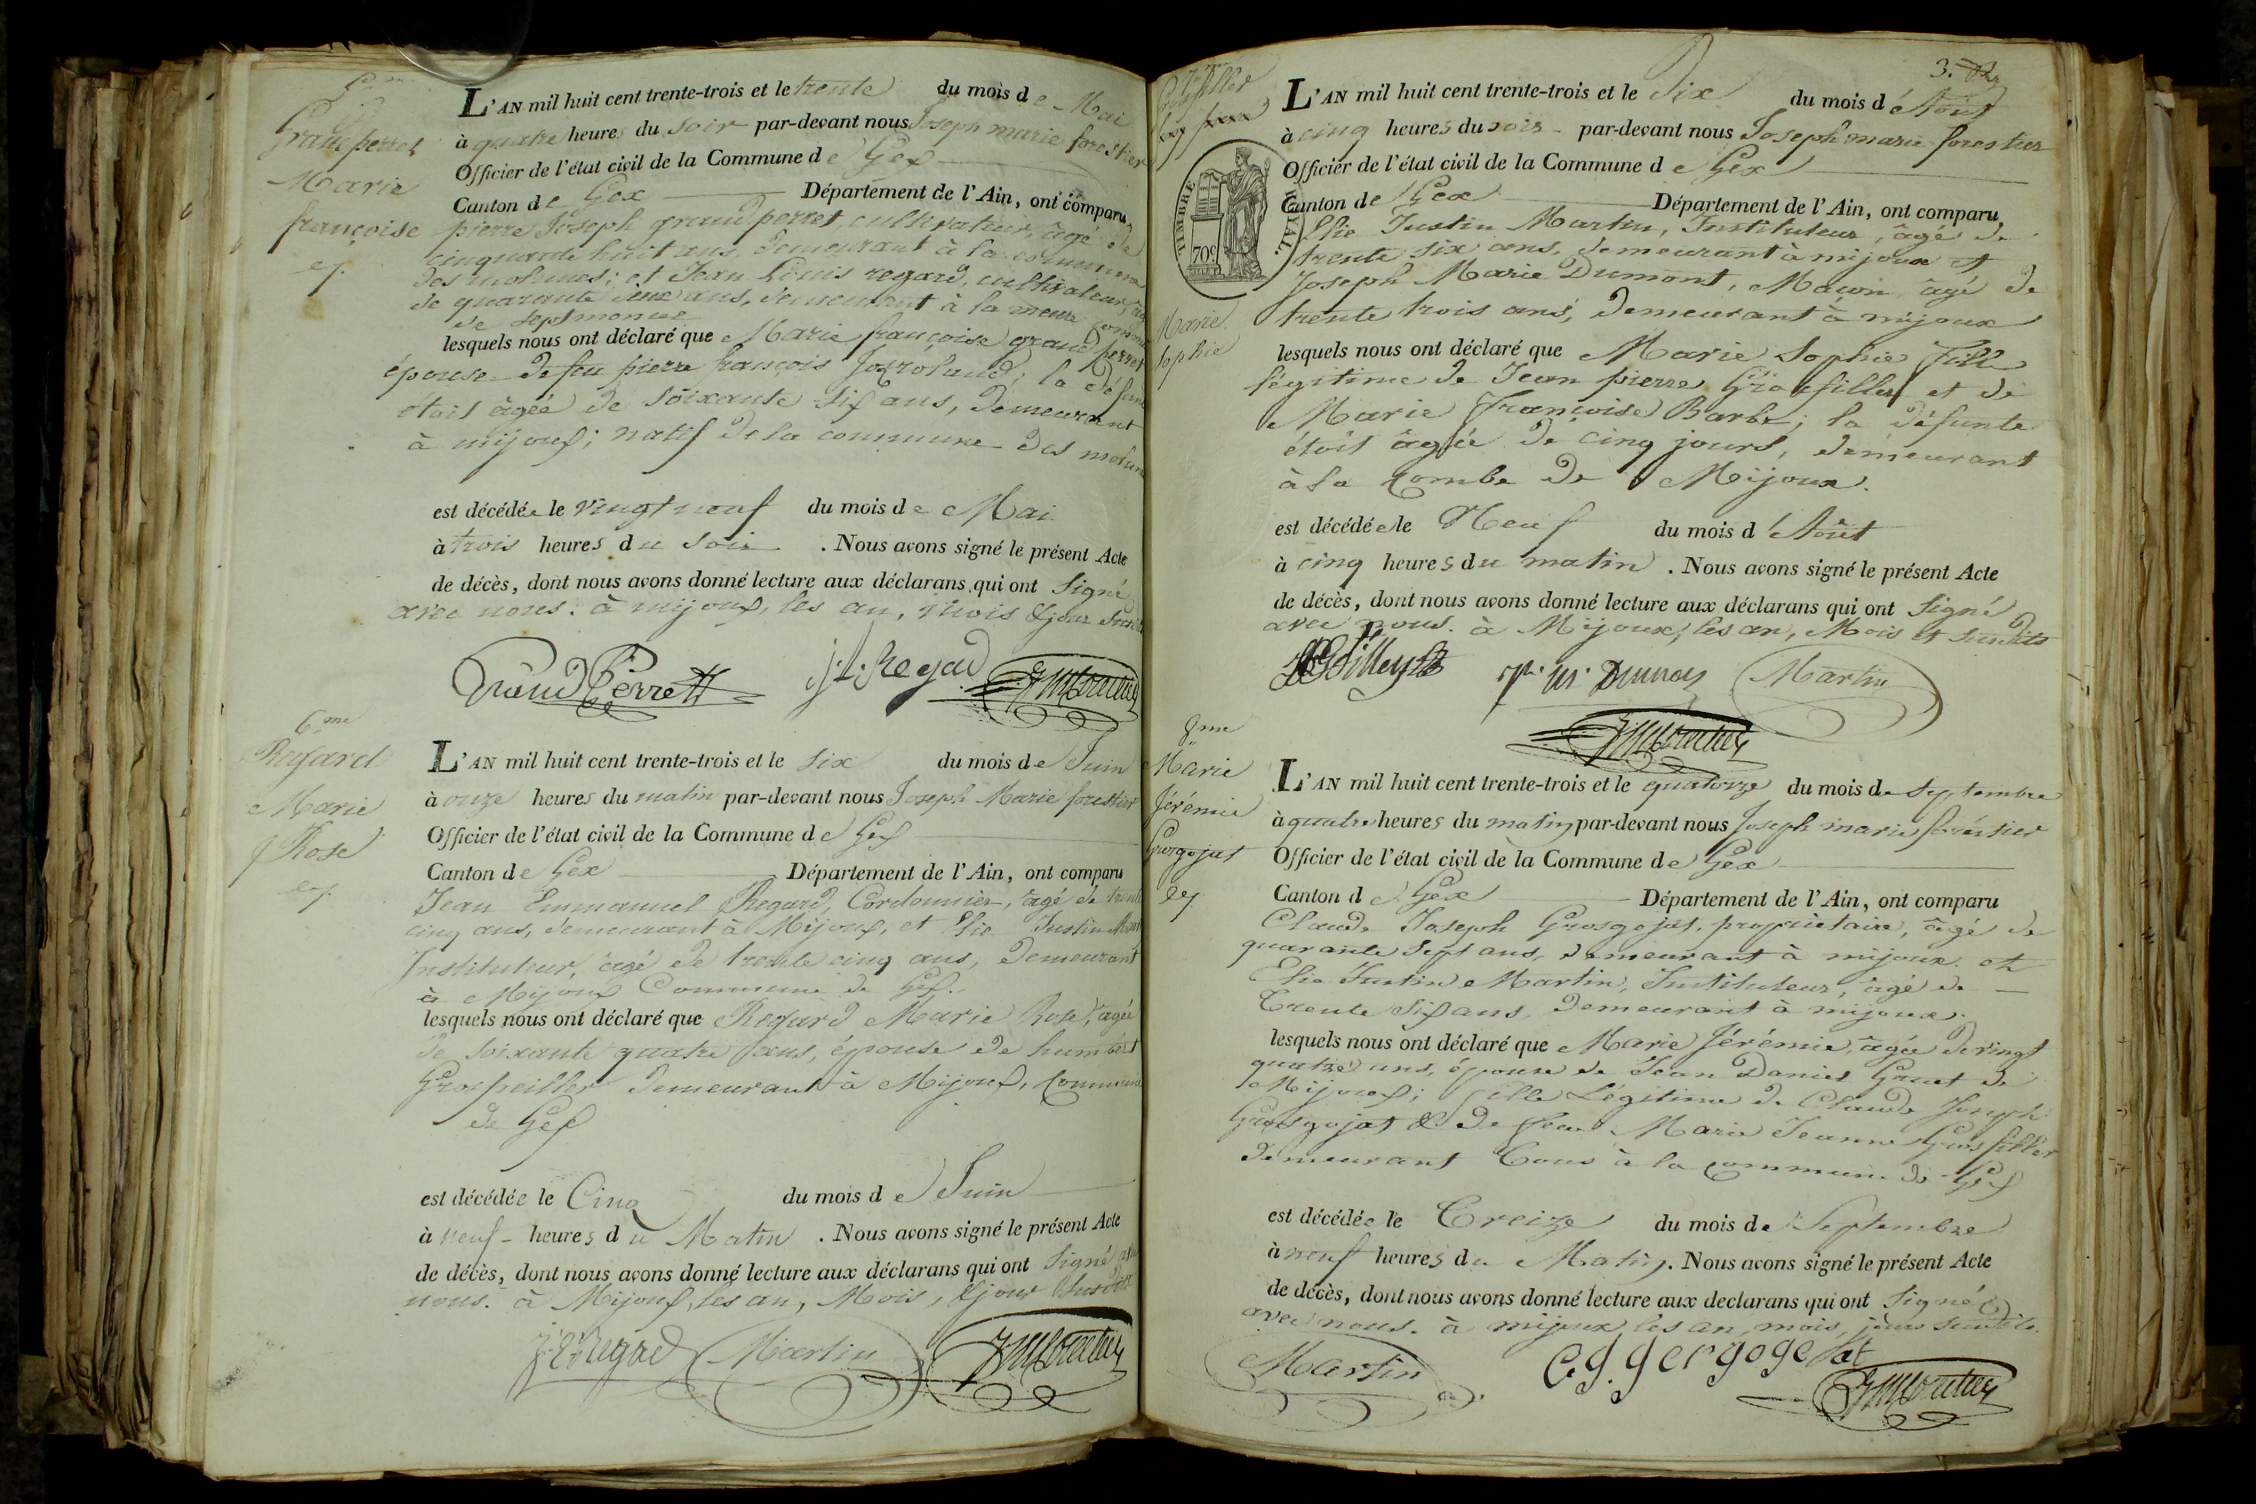 5me
Grandperret
Marie
françoise
L'AN mil huit cent trente-trois et le trente du mois de Mai
à quatre heures du soir par-devant nous Joseph marie forestier
Officier de l'état civil de la Commune de Gex
Canton de Gex Département de l'Ain, ont comparu
pierre Joseph grandperret, cultivateur, âgé de
cinquante huit ans, demeurant à la commune
des molunes; et Jean Louis regard, cultivateur,
de quarante deux ans, demeurant à la meme
de septmoncel
lesquels nous ont déclaré que Marie françoise grand perret
épouse de feu pierre françois ; la défunte
étoit âgée de soixante six ans, demeurant
à mijoux; natif de la commune des molunes
est décédée le vingt neuf du mois de Mai
à trois heures du soir . Nous avons signé le présent Acte
de décès, dont nous avons donné lecture aux déclarans qui ont Signé
avec nous. à mijoux, les an, mois & jour
Grand Perrett J. L. Regad
6.me
Regard
Marie
Rose
L'AN mil huit cent trente-trois et le six du mois de Juin
à onze heures du matin par-devant nous Joseph Marie forestier
Officier de l'état civil de la Commune de Gex
Canton de Gex Département de l'Ain, ont comparu
Jean Emmanuel Regard, Cordonnier, âgé de trente
cinq ans, demeurant à Mijoux, et Elie Justin
Instituteur, âgé de trente cinq ans, demeurant
à Mijoux Commune de Gex.
lesquels nous ont déclaré que Regard Marie Rose, âgée
de soixante quatre ans, épouse de humbert
Grosfeiller demeurant à Mijoux, Commune
de Gex
est décédée le Cinq du mois de Juin
à neuf heures du Matin . Nous avons signé le présent Acte
de décès, dont nous avons donné lecture aux déclarans qui ont Signé avec
nous. à Mijoux, les an, Mois, & jour susdits
J. E. Regad Martin
3.
Marie
Sophie
TIMBRE ROYAL.
70c
L'AN mil huit cent trente-trois et le Dix du mois d'Août
à cinq heures du soir par-devant nous Joseph marie forestier
Officier de l'état civil de la Commune de Gex
Canton de Gex Département de l'Ain, ont comparu
Elie Justin Martin, Instituteur, âgé de
trente six ans, demeurant à mijoux et
Joseph Marie Dumont, Maçon âgé de
trente trois ans, demeurant à mijoux
lesquels nous ont déclaré que Marie Sophie fille
légitime de Jean pierre Grosfiller et de
Marie Françoise Barbe; la défunte
étoit âgée de cinq jours, demeurant
à la Combe de Mijoux.
est décédée le Neuf du mois d'Août
à cinq heures du matin . Nous avons signé le présent Acte
de décès, dont nous avons donné lecture aux déclarans qui ont Signé
avec nous. à Mijoux, les an, Mois et susdits
Martin
8me
Marie
Jérémie
Grosgojat
L'AN mil huit cent trente-trois et le quatorze du mois de Septembre
à quatre heures du matin par-devant nous Joseph marie forestier
Officier de l'état civil de la Commune de Gex
Canton de Gex Département de l'Ain, ont comparu
Claude Joseph Grosgojat, propriétaire, âgé de
quarante sept ans, demeurant à mijoux. et
Elie Justin Martin, Instituteur, âgé de
Trente six ans, demeurant à mijoux.
lesquels nous ont déclaré que Marie Jérémie, âgée de vingt
quatre ans, épouse de Jean Daniel Gruet de
Mijoux; fille Légitime de Claude Joseph
Grosgojat & de Marie Jeanne Grosfiller
demeurant Tous à la commune de Gex
est décédée le Treize du mois de Septembre
à neuf heures du Matin. Nous avons signé le présent Acte
de décès, dont nous avons donné lecture aux declarans qui ont Signé
avec nous. à mijoux les an, mois, jours susdits.
Martin